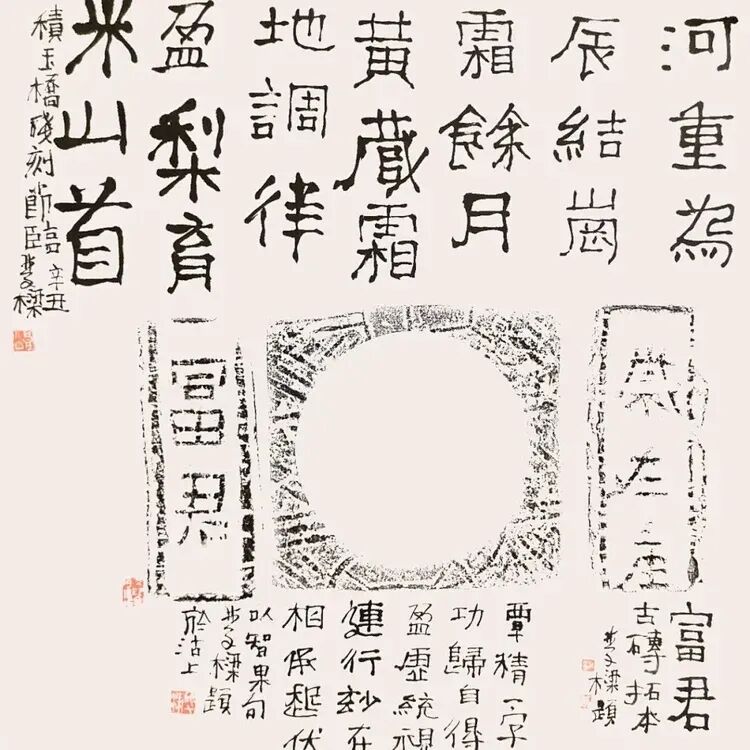 河重為
辰結崗
霜餘月
黃藏霜
地調律
盈梨育
米山首
積玉橋殘刻節臨辛丑
樑
左
富君
富君
古磚拓本
樑題
覃精一字
功歸自得
盈虛統視
連行妙在
相承起伏
以智果句
樑題
於沽上